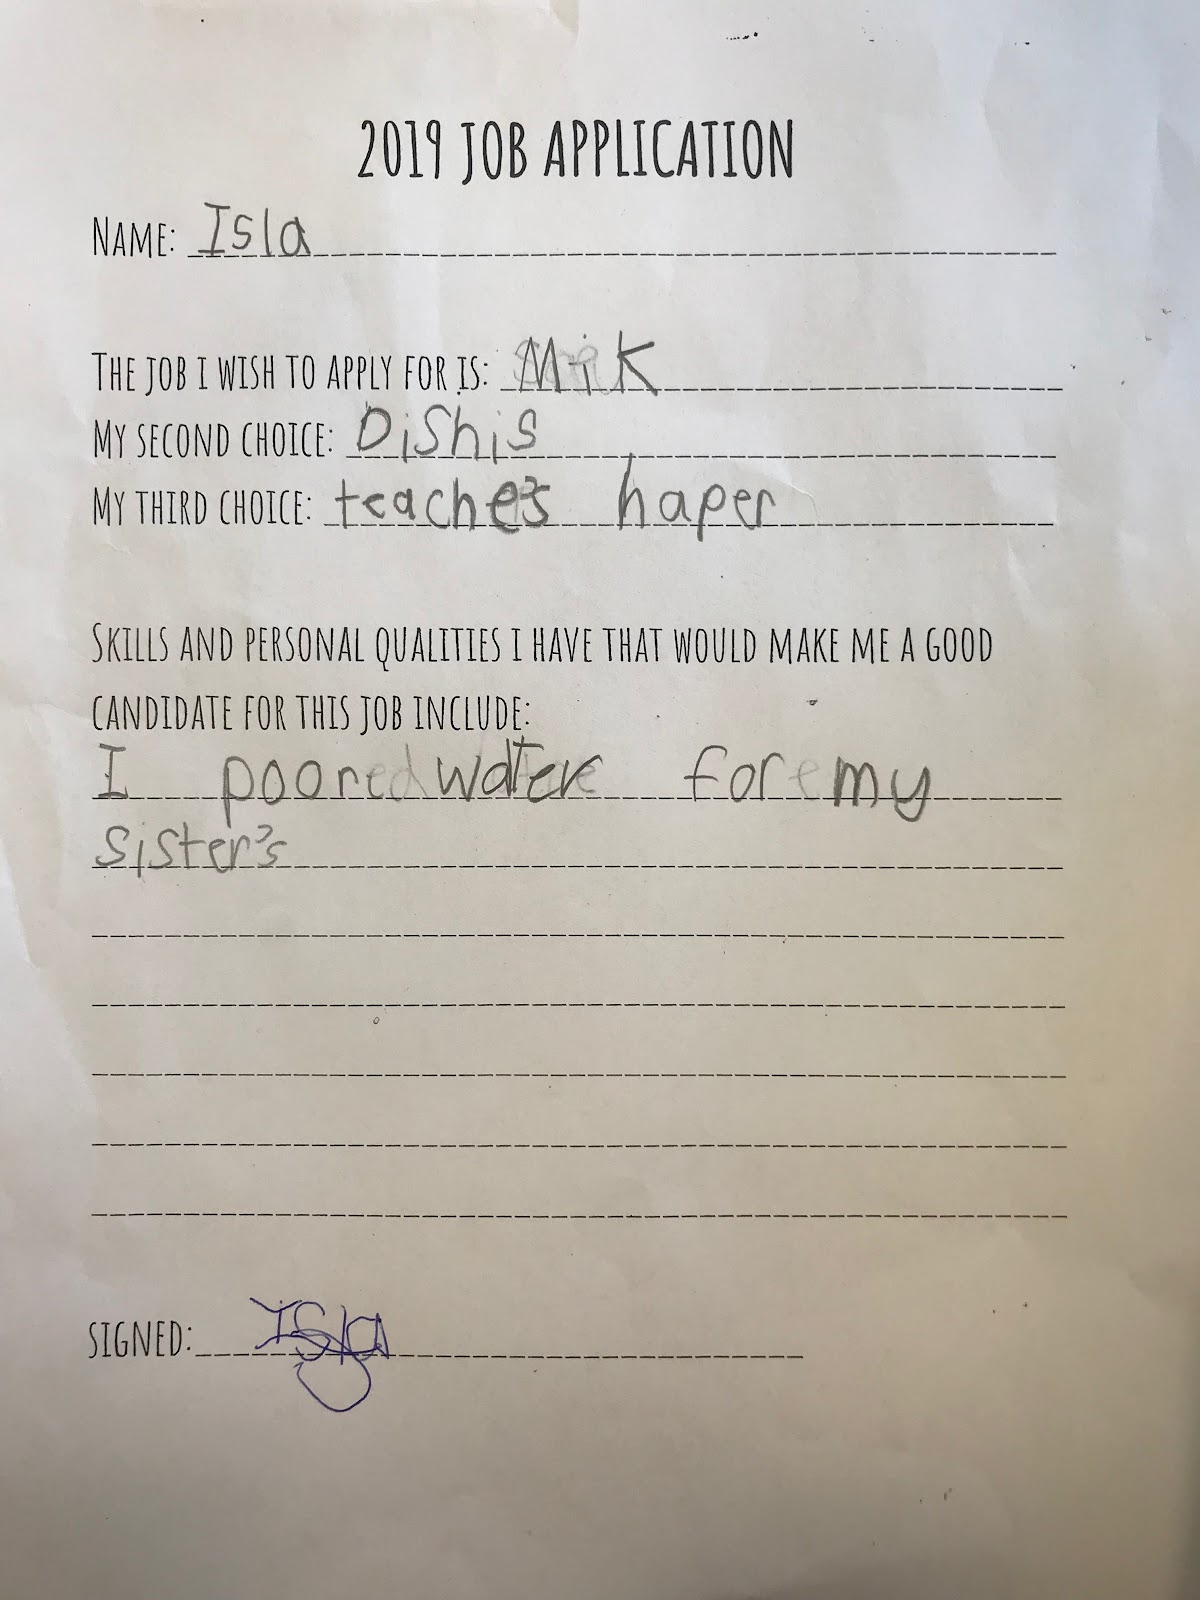 2019 JOB APPLICATION
NAME: Isla
THE JOB I WISH TO APPLY FOR IS: Mik
MY SECOND CHOICE: Dishis
MY THIRD CHOICE: teache's haper
SKILLS AND PERSONAL QUALITIES I HAVE THAT WOULD MAKE ME A GOOD
CANDIDATE FOR THIS JOB INCLUDE:
I poored water for my
sister's
SIGNED: Isla